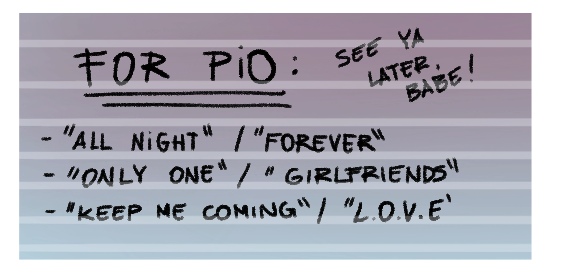 FOR PiO:
SEE YA
LATER,
BABE!
- "ALL NiGHT" / "FOREVER"
- "ONLY ONE" / "GiRLFRiENDS"
- "KEEP ME COMING" / "L.O.V.E'